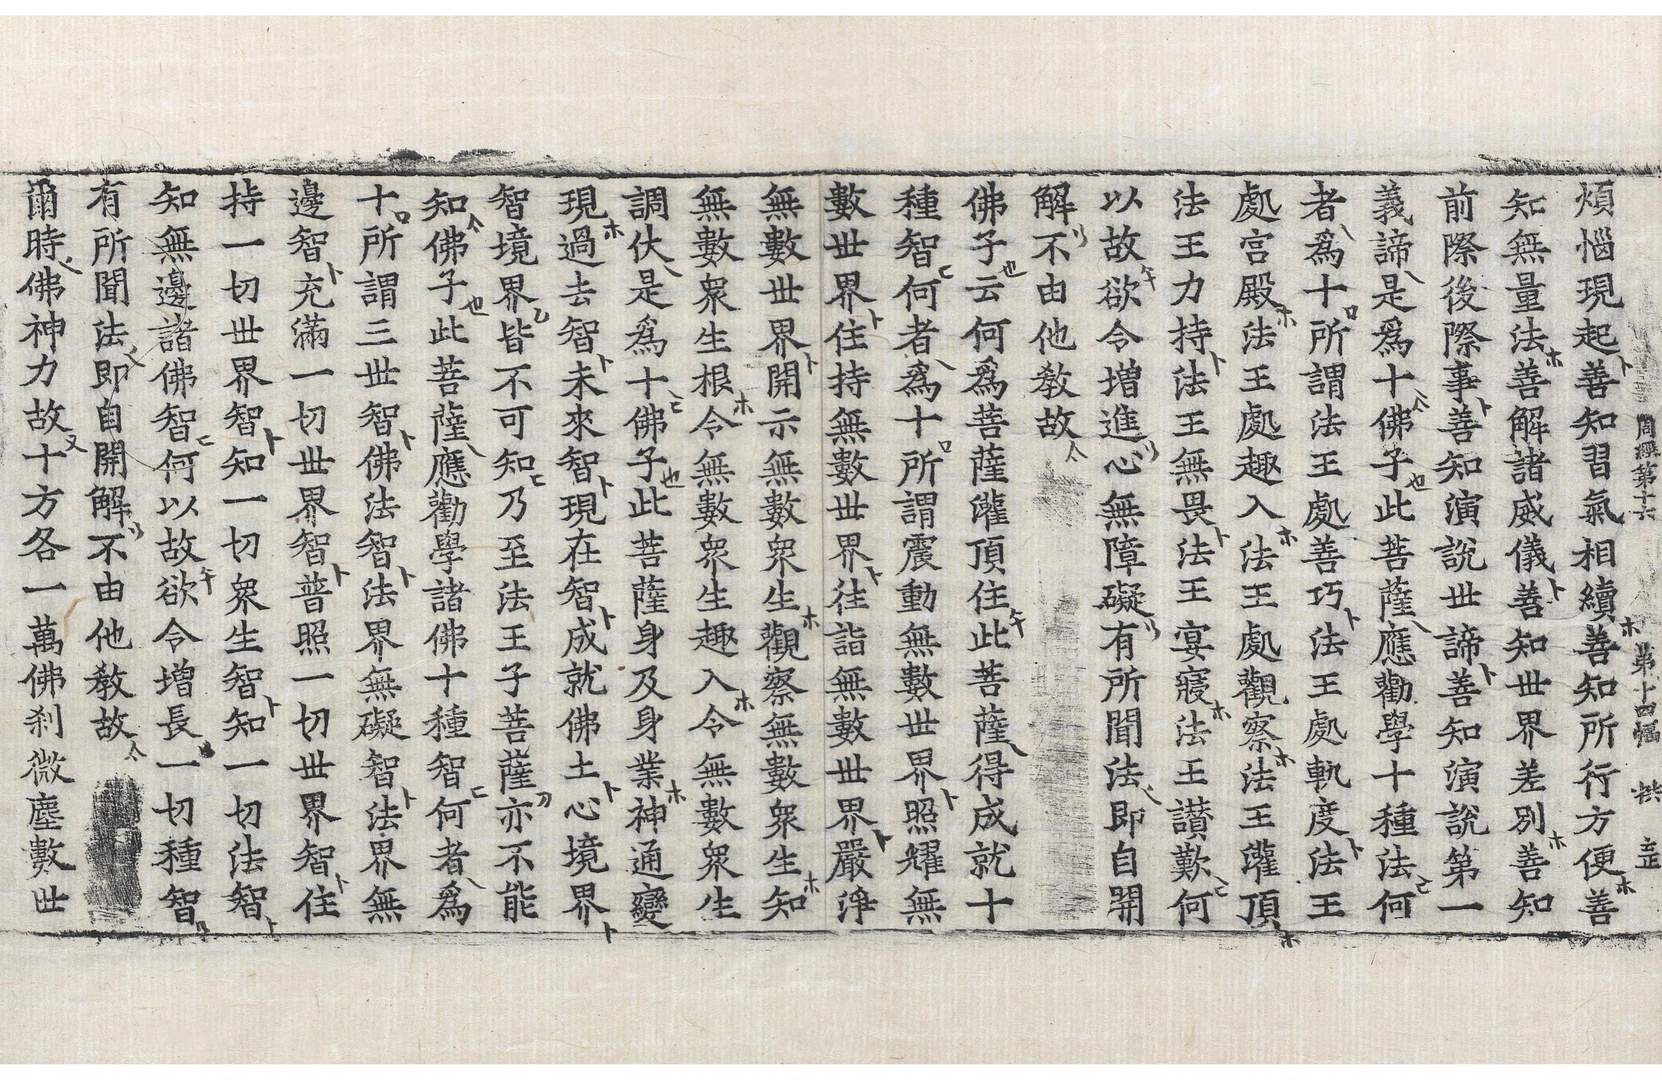 周經第十六　第十四幅　拱　正
煩惱現起善知習氣相續善知所行方便善
知無量法善解諸威儀善知世界差別善知
前際後際事善知演說世諦善知演說第一
義諦是爲十佛子此菩薩應勸學十種法何
者爲十所謂法王處善巧法王處軌度法王
處宮殿法王處趣入法王處觀察法王灌頂
法王力持法王無畏法王宴寢法王讚歎何
以故欲令增進心無障礙有所聞法即自開
解不由他教故
佛子云何爲菩薩灌頂住此菩薩得成就十
種智何者爲十所謂震動無數世界照耀無
數世界住持無數世界往詣無數世界嚴淨
無數世界開示無數衆生觀察無數衆生知
無數衆生根令無數衆生趣入令無數衆生
調伏是爲十佛子此菩薩身及身業神通變
現過去智未來智現在智成就佛土心境界
智境界皆不可知乃至法王子菩薩亦不能
知佛子此菩薩應勸學諸佛十種智何者爲
十所謂三世智佛法智法界無礙智法界無
邊智充滿一切世界智普照一切世界智住
持一切世界智知一切衆生智知一切法智
知無邊諸佛智何以故欲令增長一切種智
有所聞法即自開解不由他教故
爾時佛神力故十方各一萬佛刹微塵數世